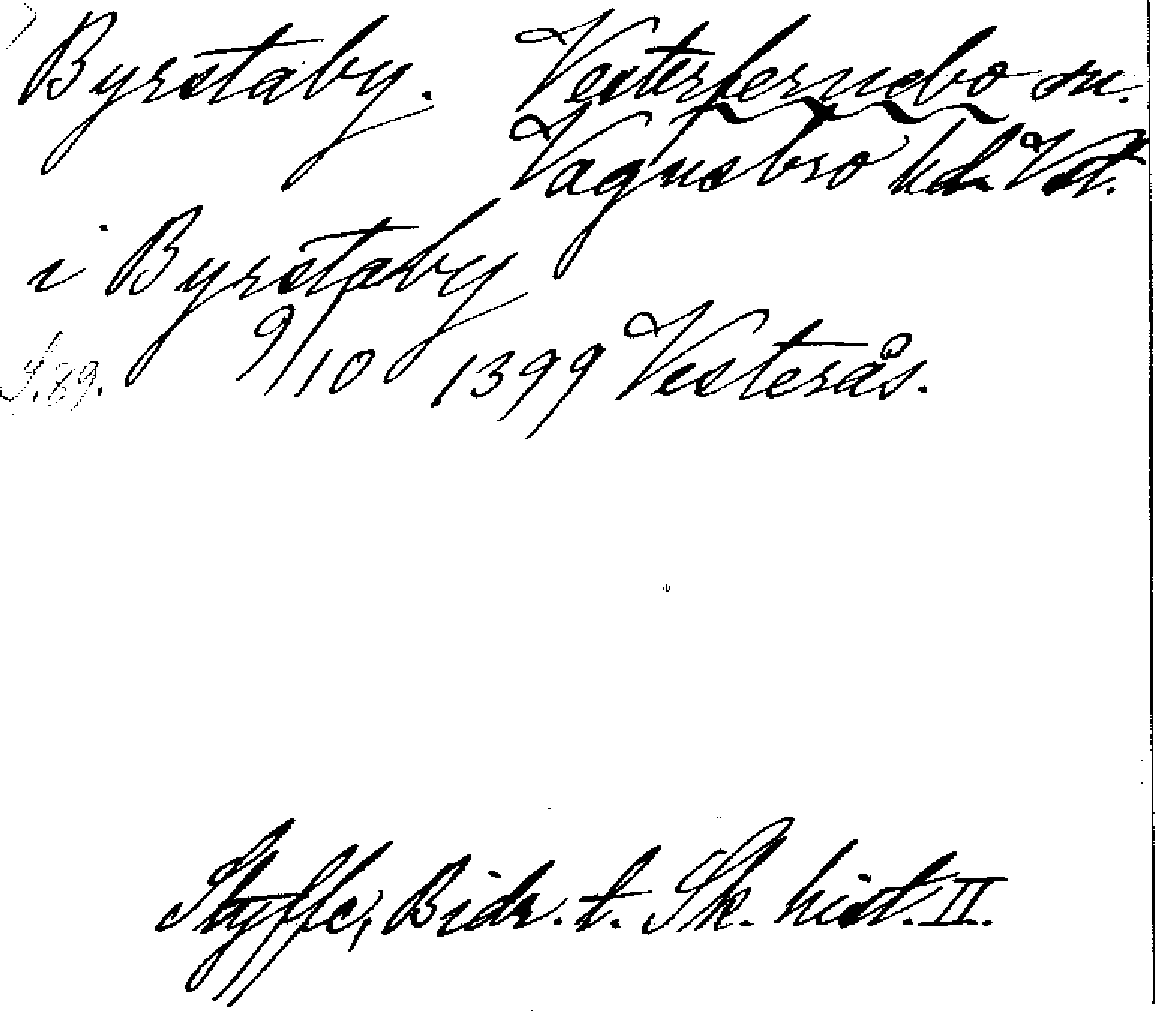 Byrstaby. Vesterfernebo sn.
Vagnsbro hd. Vstm.
i Byrstaby
S. 89. 9/10 1399 Vesterås.
Styffe, Bidr. t. Sk. hist. II.